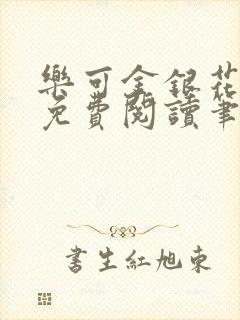 樂可金銀花
免費閱讀筆
書生紅旭東